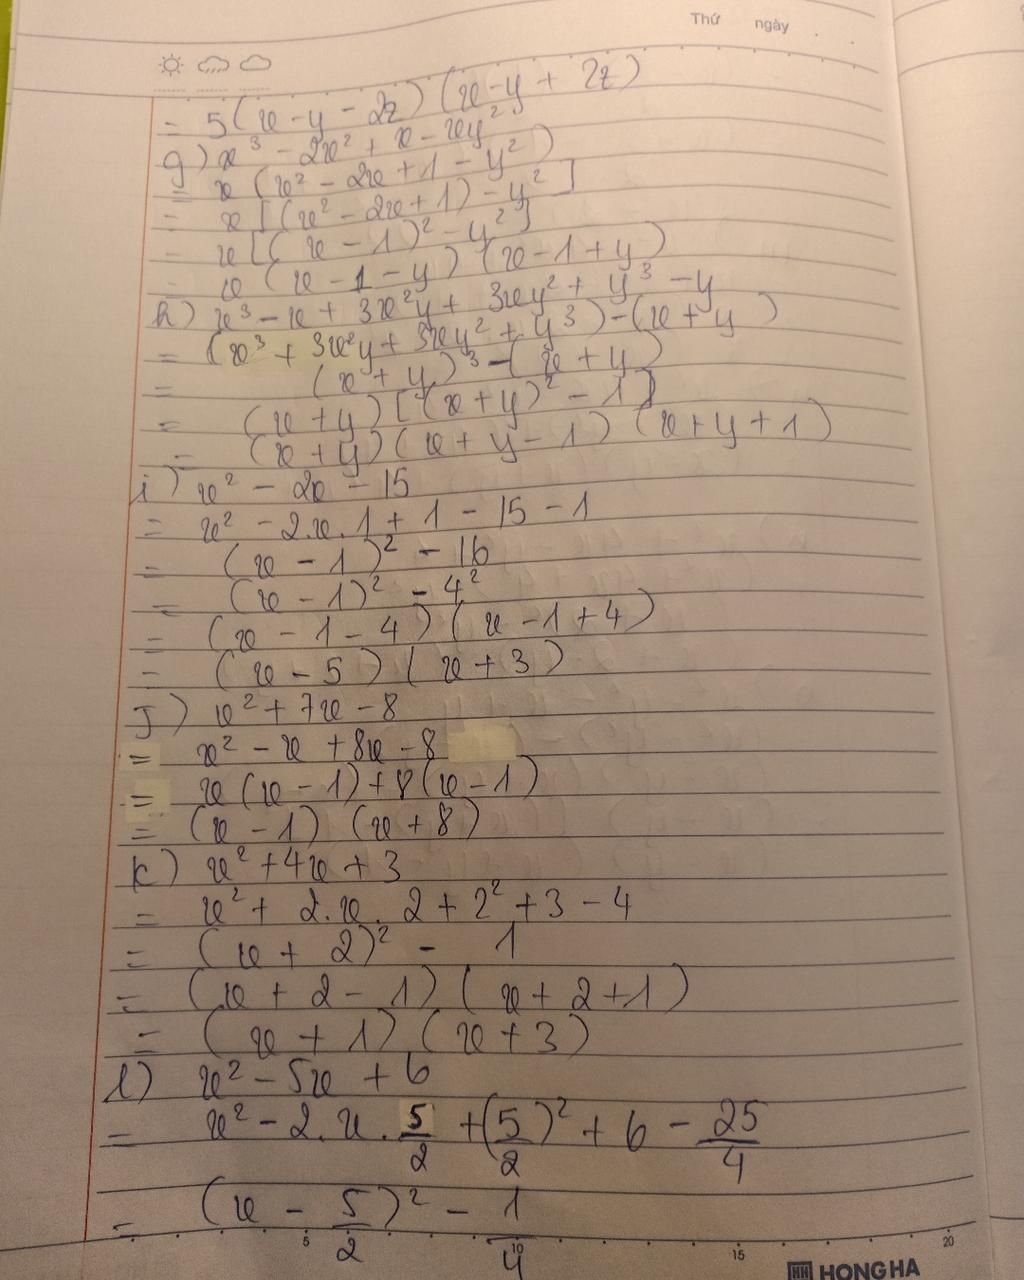 Thứ ngày
= 5(x-y-2z)(x-y+2z)
g) x³ - 2x² + x - xy²
= x (x² - 2x + 1 - y²)
= x [(x² - 2x + 1) - y²]
= x [(x - 1)² - y²]
= x (x - 1 - y) (x - 1 + y)
h) x³ - x + 3x²y + 3xy² + y³ - y
= (x³ + 3x²y + 3xy² + y³) - (x + y)
= (x + y)³ - (x + y)
= (x + y) [(x + y)² - 1]
= (x + y) (x + y - 1) (x + y + 1)
i) x² - 2x - 15
= x² - 2.x.1 + 1 - 15 - 1
= (x - 1)² - 16
= (x - 1)² - 4²
= (x - 1 - 4) (x - 1 + 4)
= (x - 5) (x + 3)
J) x² + 7x - 8
= x² - x + 8x - 8
= x (x - 1) + 8 (x - 1)
= (x - 1) (x + 8)
k) x² + 4x + 3
= x² + 2.x.2 + 2² + 3 - 4
= (x + 2)² - 1
= (x + 2 - 1) (x + 2 + 1)
= (x + 1) (x + 3)
l) x² - 5x + 6
= x² - 2.x.5/2 + (5/2)² + 6 - 25/4
= (x - 5/2)² - 1/4
5 10 15 20
HONG HA